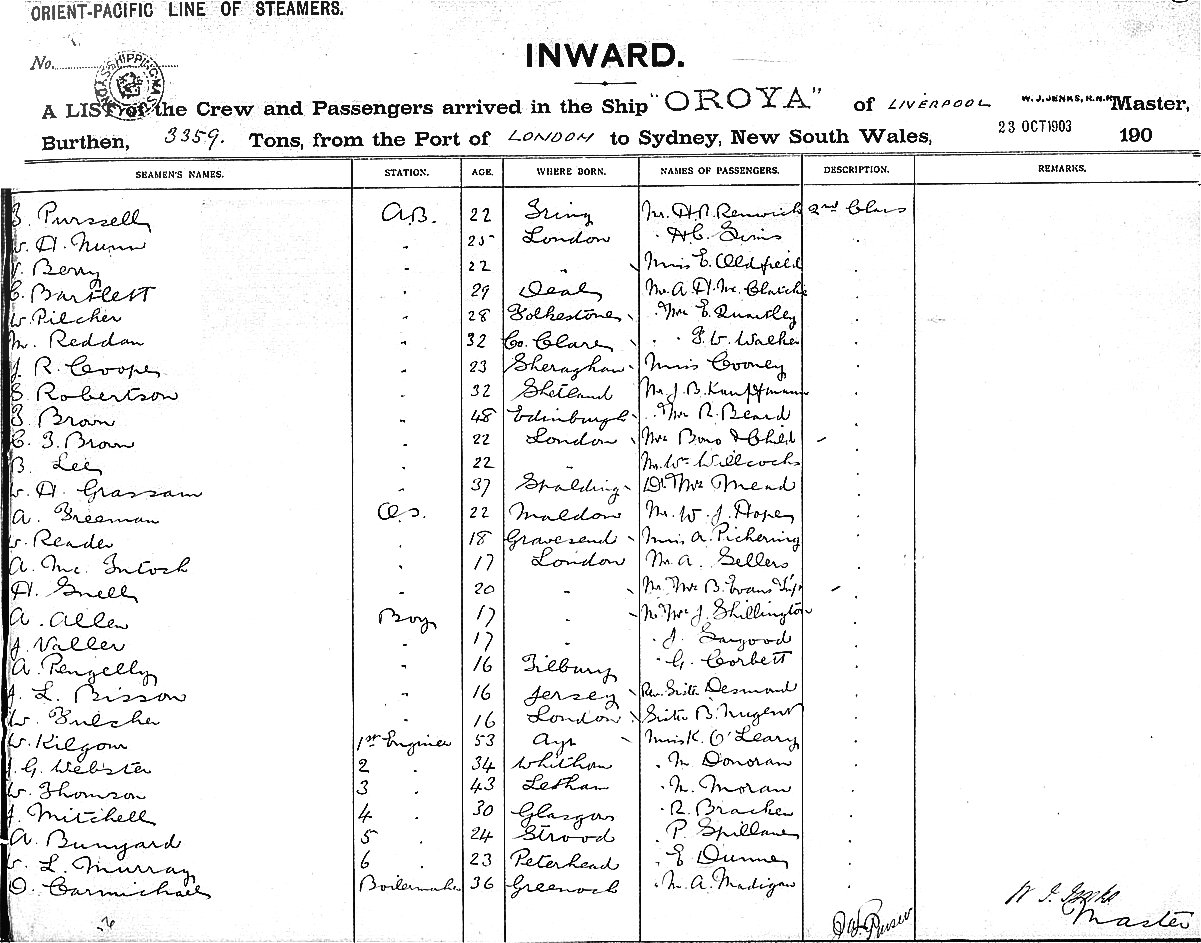 ORIENT-PACIFIC LINE OF STEAMERS.
No.
INWARD.
A LIST of the Crew and Passengers arrived in the Ship "OROYA" of LIVERPOOL W. J. JENKS, R.N.R. Master,
Burthen, 3359. Tons, from the Port of LONDON to Sydney, New South Wales, 23 OCT 1903 190
SEAMEN'S NAMES. STATION. AGE. WHERE BORN. NAMES OF PASSENGERS. DESCRIPTION. REMARKS.
Purssell A.B. 22 Tring Mr. H.R. Renwick 2nd Class
W. H. Nunn " 25 London " H C Sims "
Berry " 22 " Miss E. Oldfield "
C. Bartlett " 29 Deal Mr. A. H. "
W. Pilcher " 28 Folkestone " Mrs E. "
M. Reddan " 32 Co. Clare " "
J. R. Cooper " 23 Miss Cooney "
Robertson " 32 Shetland Mr. J. B. Kauffmann "
Brown " 48 Edinburgh " Mrs R. Beard "
C. Brown " 22 London Mrs & Child "
B. Lee " 22 " Mr. Wm Willcocks "
W. H. Grassam " 37 Spalding Dr Mrs Mead "
A. Freeman O.S. 22 Maldon Mr. W. J. Hope "
W. Reader " 18 Gravesend Miss A. Pickering "
A. Mc. Intosh " 17 London Mr. A. Sellers "
H. Snell " 20 " Mr. Mrs B. Evans "
A. Allen Boy 17 " Mr Mrs J. Shillington "
J. Valler " 17 " " J. Sargood "
A. Pengelly " 16 Tilbury " G. Corbett "
J. L. Bisson " 16 Jersey Rev. Sister Desmond "
W. Fulcher " 16 London Sister B. Nugent "
W. Kilgour 1st Engineer 53 Ayr Miss K. O'Leary "
J. G. Webster 2 " 34 " M Donovan "
W. Thomson 3 " 43 Letham " M. Moran "
J. Mitchell 4 " 30 Glasgow " R. Bracken "
A. Bunyard 5 " 24 Strood " P. Spillane "
L. Murray 6 " 23 Peterhead " E Dunne "
D. Carmichael Boilermaker 36 Greenock " M. A. Madigan "
Purser
W J Jenks
Master